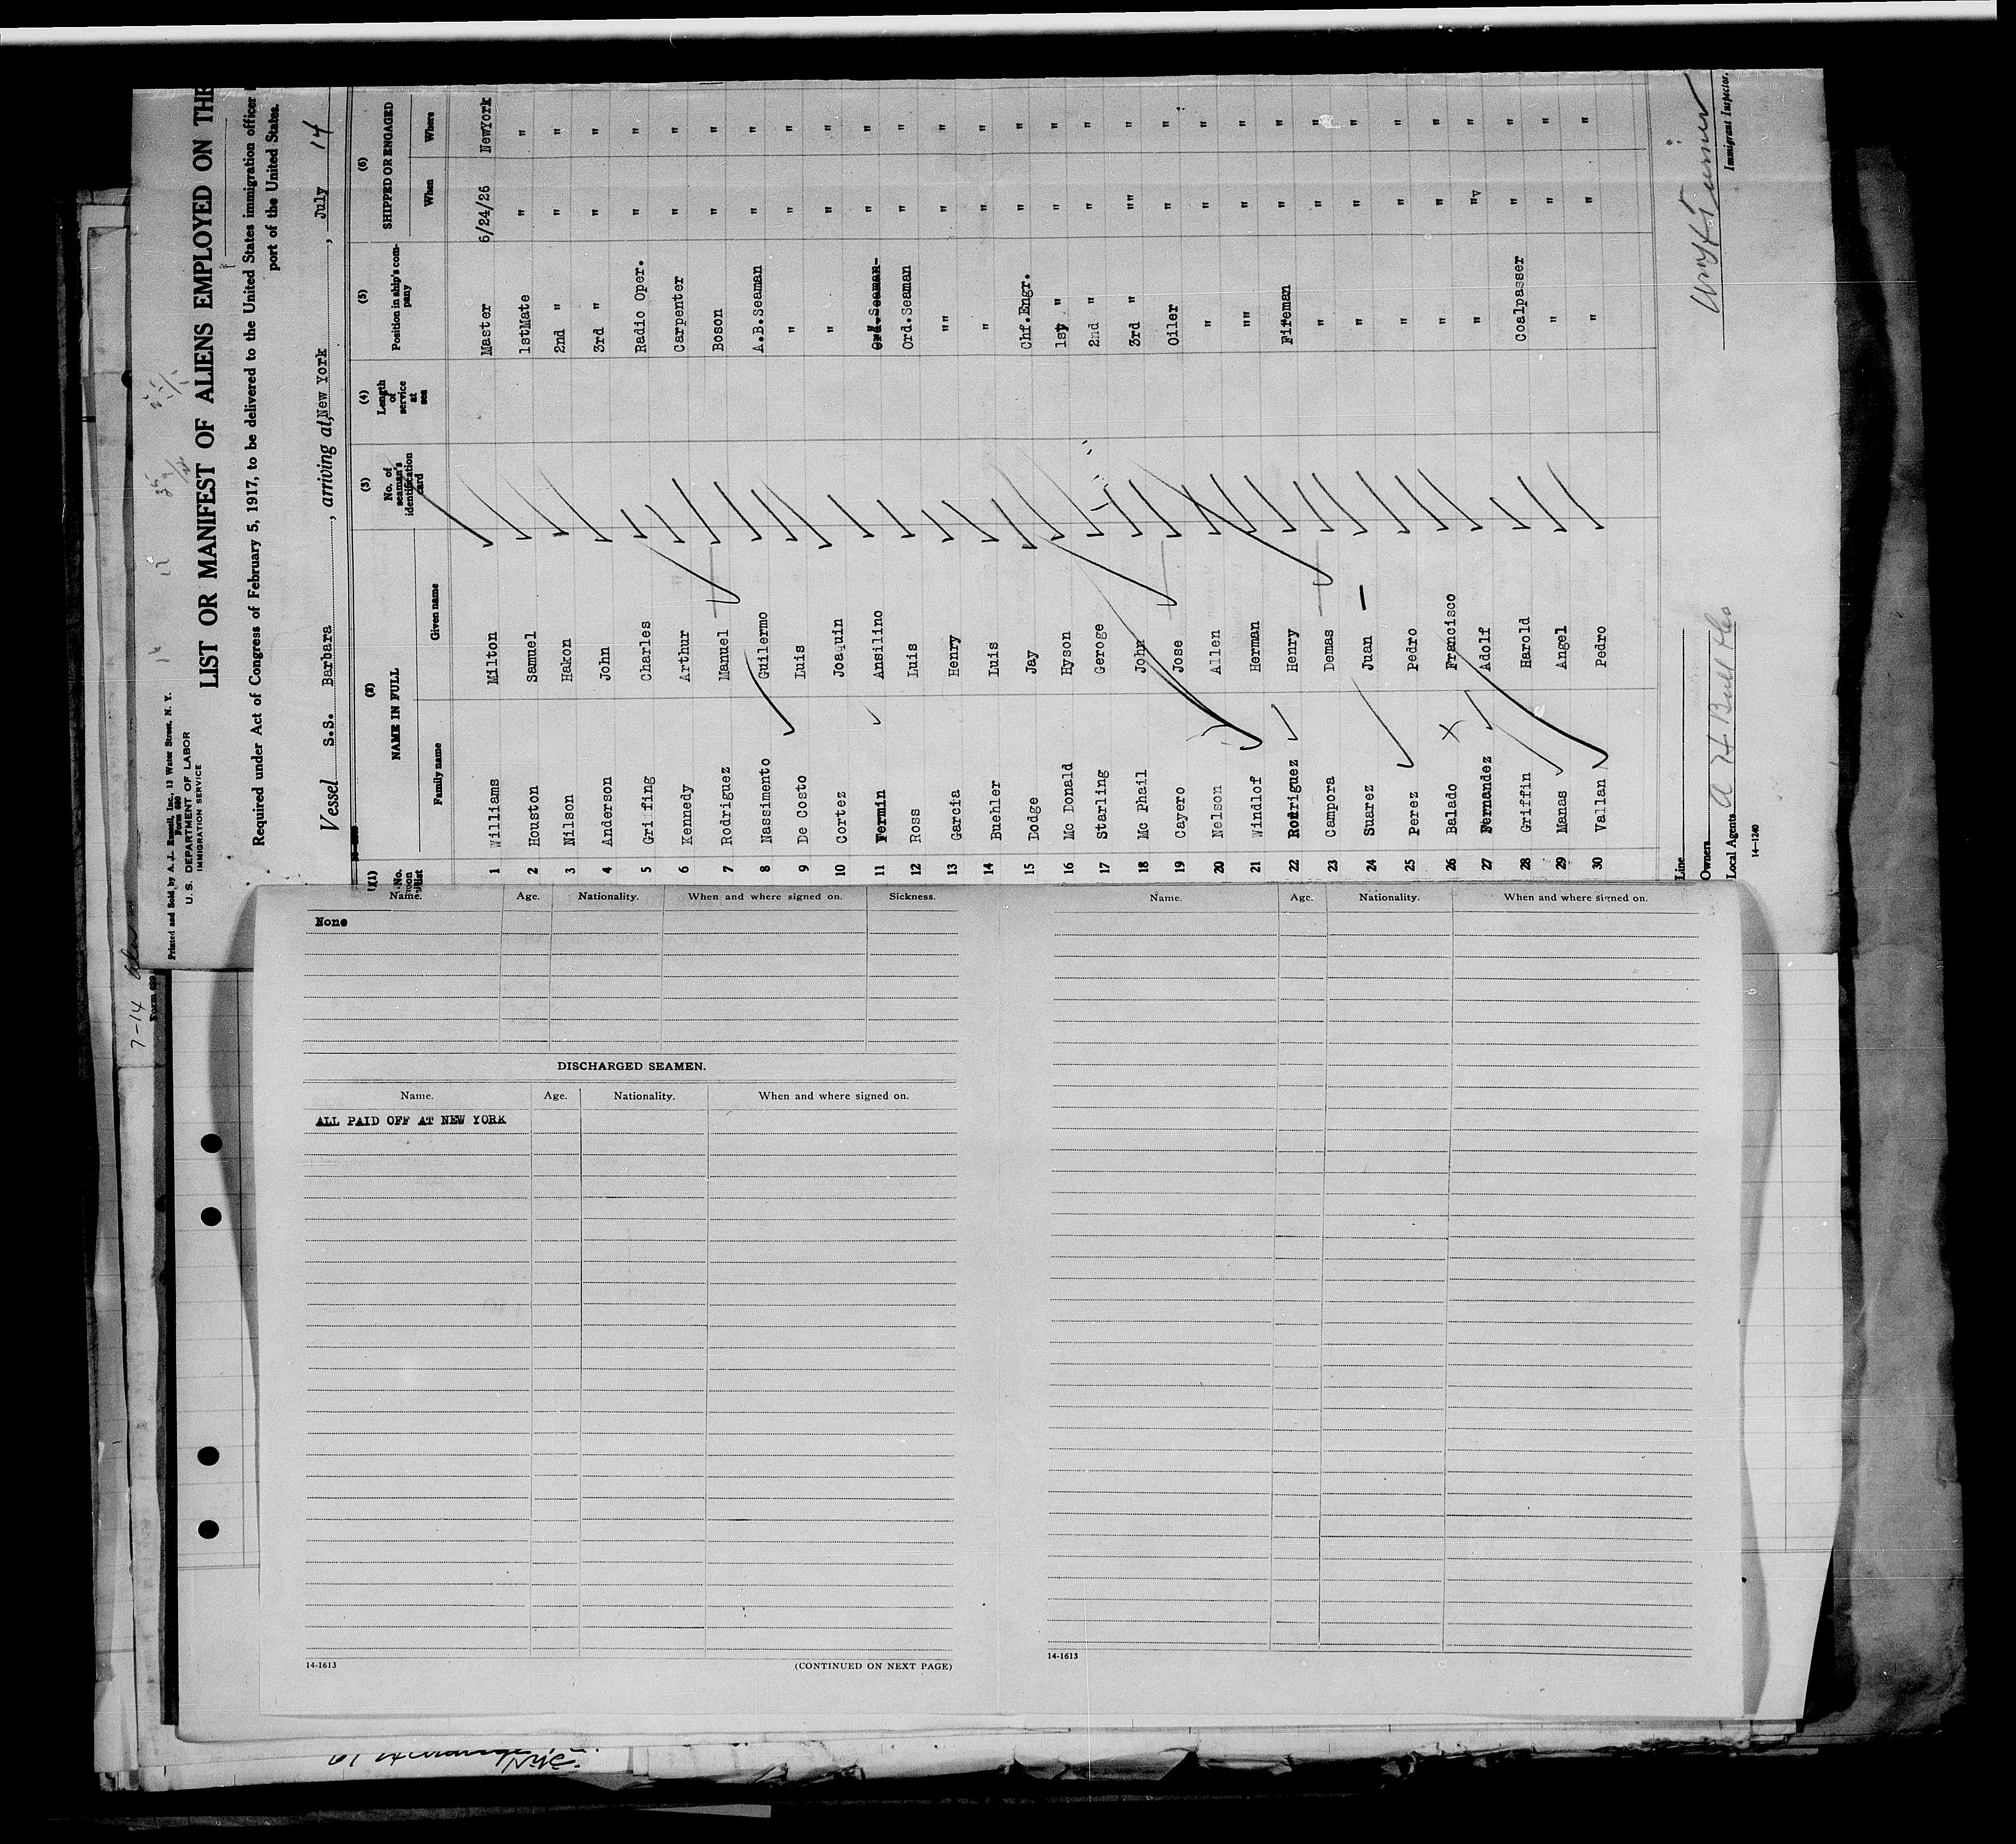 Printed and Sold by A. J. Russell, Inc., 13 Water Street, N. Y.
Form 680
U. S. DEPARTMENT OF LABOR
IMMIGRATION SERVICE
LIST OR MANIFEST OF ALIENS EMPLOYED ON THE
Required under Act of Congress of February 5, 1917, to be delivered to the United States immigration officer
port of the United States.
Vessel S.S. Barbara, arriving at, New York, July 14
(1) (2) (3) (4) (5) (6)
No. on list NAME IN FULL No. of seaman's identification card Length of service at sea Position in ship's company SHIPPED OR ENGAGED
Family name Given name When Where
1 Williams Milton Master 6/24/26 NewYork
2 Houston Samuel 1stMate " "
3 Nilson Hakon 2nd " " "
4 Anderson John 3rd " " "
5 Griffing Charles Radio Oper. " "
6 Kennedy Arthur Carpenter " "
7 Rodriguez Manuel Boson " "
8 Nassimento Guilermo A.B.Seaman " "
9 De Costo Luis " " "
10 Cortez Joaquin " " "
11 Fermin Ansilino Ord.Seaman- " "
12 Ross Luis Ord.Seaman " "
13 Garcia Henry "" " "
14 Buehler Luis " " "
15 Dodge Jay Chf.Engr. " "
16 Mc Donald Hyson 1st " " "
17 Starling Geroge 2nd " " "
18 Mc Phail John 3rd " "" "
19 Cayero Jose Oiler " "
20 Nelson Allen " " "
21 Windlof Herman "" " "
22 Rodriguez Henry Fireman " "
23 Campora Demas " " "
24 Suarez Juan " " "
25 Perez Pedro " " "
26 Balado Francisco " " "
27 Fernandez Adolf " "v "
28 Griffin Harold Coalpasser " "
29 Manas Angel " " "
30 Vallan Pedro " " "
Line
Owners
Local Agents A H Bull & Co
Immigrant Inspector.
14-1240
7-14
Form 689
Name. Age. Nationality. When and where signed on. Sickness.
None
DISCHARGED SEAMEN.
Name. Age. Nationality. When and where signed on.
ALL PAID OFF AT NEW YORK
14-1613 (CONTINUED ON NEXT PAGE)
Name. Age. Nationality. When and where signed on.
14-1613